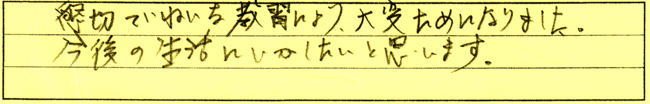 親切ていねいな教習により、大変ためになりました。
今後の生活にいかしたいと思います。